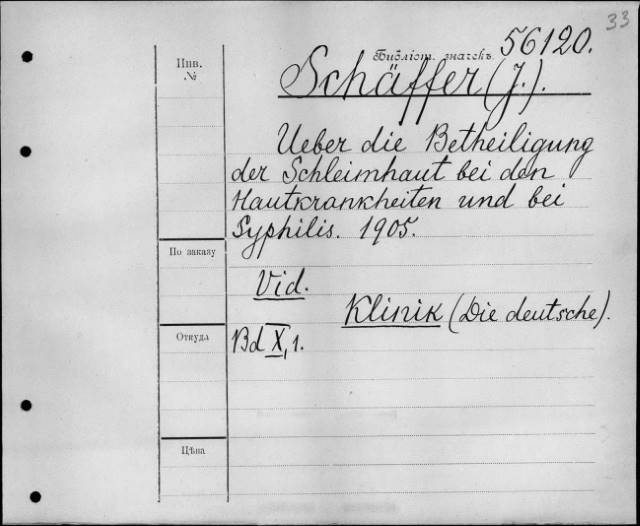 33
Инв.
№
Библіот. значекъ 56120.
Schäffer (J.).
Ueber die Betheiligung
der Schleimhaut bei den
Hautkrankheiten und bei
Syphilis. 1905.
По заказу
Vid.
Klinik (Die deutsche).
Откуда
Bd X, 1.
Цѣна